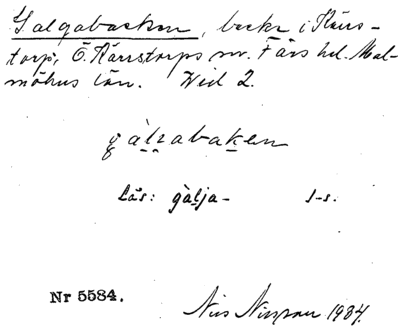 Galgabacken, backe i Kärrs-
torp, Ö. Kärrstorps sn. Färs hd. Mal-
möhus län. Wid 2.
gàlʒabakεn
Läs: gàlja- J-s.
Nr 5584. Nils Nilsson 1934.